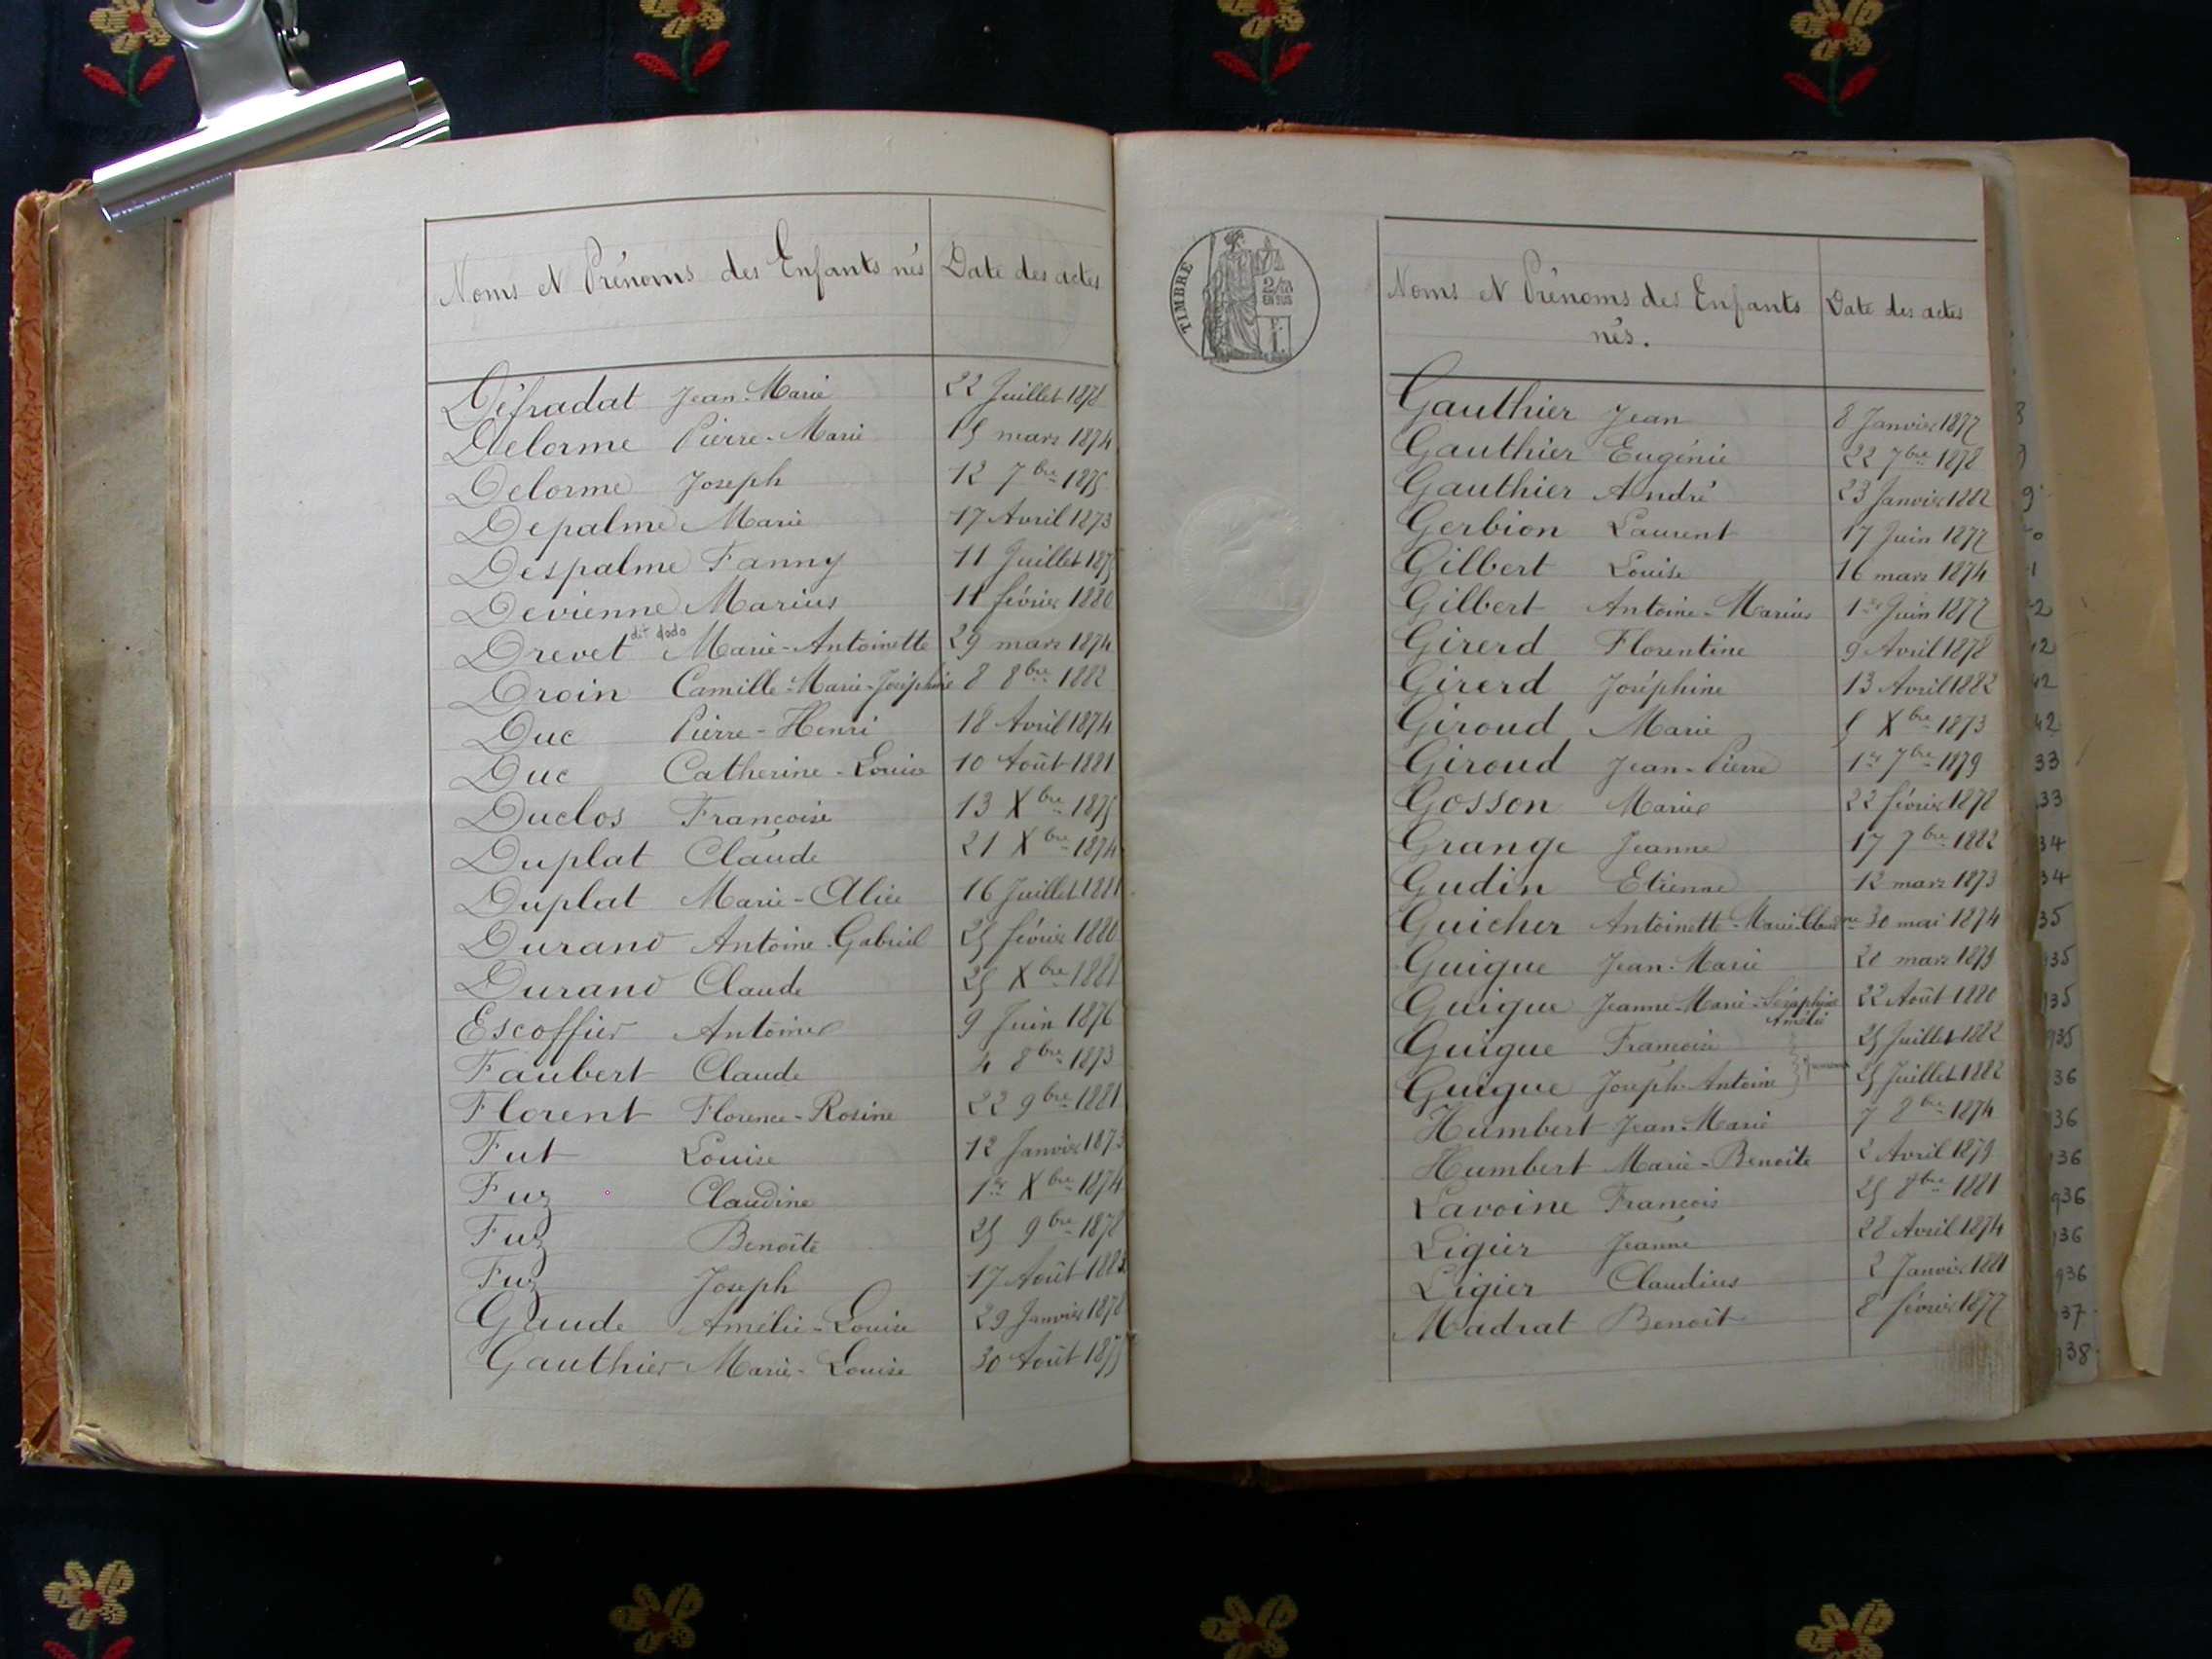 Noms et Prénoms des Enfants nés
Date des actes
Défradat Jean-Marie 22 Juillet 1878
Delorme Pierre-Marie 15 mars 1874
Delorme Joseph 12 7bre 1875
Depalme Marie 17 Avril 1873
Despalme Fanny 11 Juillet 1875
Devienne Marius 11 février 1880
Drevet dit dodo Marie-Antoinette 29 mars 1874
Droin Camille-Marie-Joséphine 8 8bre 1882
Duc Pierre-Henri 18 Avril 1874
Duc Catherine-Louise 10 Août 1881
Duclos Françoise 13 Xbre 1875
Duplat Claude 21 Xbre 1874
Duplat Marie-Alice 16 Juillet 1881
Durand Antoine-Gabriel 25 février 1880
Durand Claude 25 Xbre 1881
Escoffier Antoine 9 Juin 1876
Faubert Claude 4 8bre 1873
Florent Florence-Rosine 22 9bre 1881
Fut Louise 12 Janvier 1873
Fuz Claudine 1er Xbre 1874
Fuz Benoîte 25 9bre 1878
Fuz Joseph 17 Août 1882
Gaude Amélie-Louise 29 Janvier 1878
Gauthier Marie-Louise 30 Août 1875
TIMBRE
2/10
EN SUS
1 F.
Noms et Prénoms des Enfants
nés.
Date des actes
Gauthier Jean 8 Janvier 1877
Gauthier Eugénie 22 7bre 1878
Gauthier André 23 Janvier 1882
Gerbion Laurent 17 Juin 1877
Gilbert Louise 16 mars 1874
Gilbert Antoine-Marius 1er Juin 1877
Girerd Florentine 9 Avril 1878
Girerd Joséphine 13 Avril 1882
Giroud Marie 5 Xbre 1873
Giroud Jean-Pierre 1er 7bre 1879
Gosson Marie 22 février 1878
Grange Jeanne 17 7bre 1882
Gudin Etienne 12 mars 1873
Guicher Antoinette-Marie 30 mai 1874
Guigue Jean-Marie 28 mars 1879
Guigue Jeanne-Marie-Séraphine 22 Août 1880
Amélie
Guigue Françoise 25 Juillet 1882
Guigue Joseph-Antoine 25 Juillet 1882
Humbert Jean-Marie 7 8bre 1874
Humbert Marie-Benoîte 2 Avril 1879
Lavoine François 25 8bre 1881
Ligier Jeanne 28 Avril 1874
Ligier Claudius 2 Janvier 1881
Madrat Benoît 8 février 1877
33
33
34
34
35
35
35
935
36
36
36
936
36
936
37
938